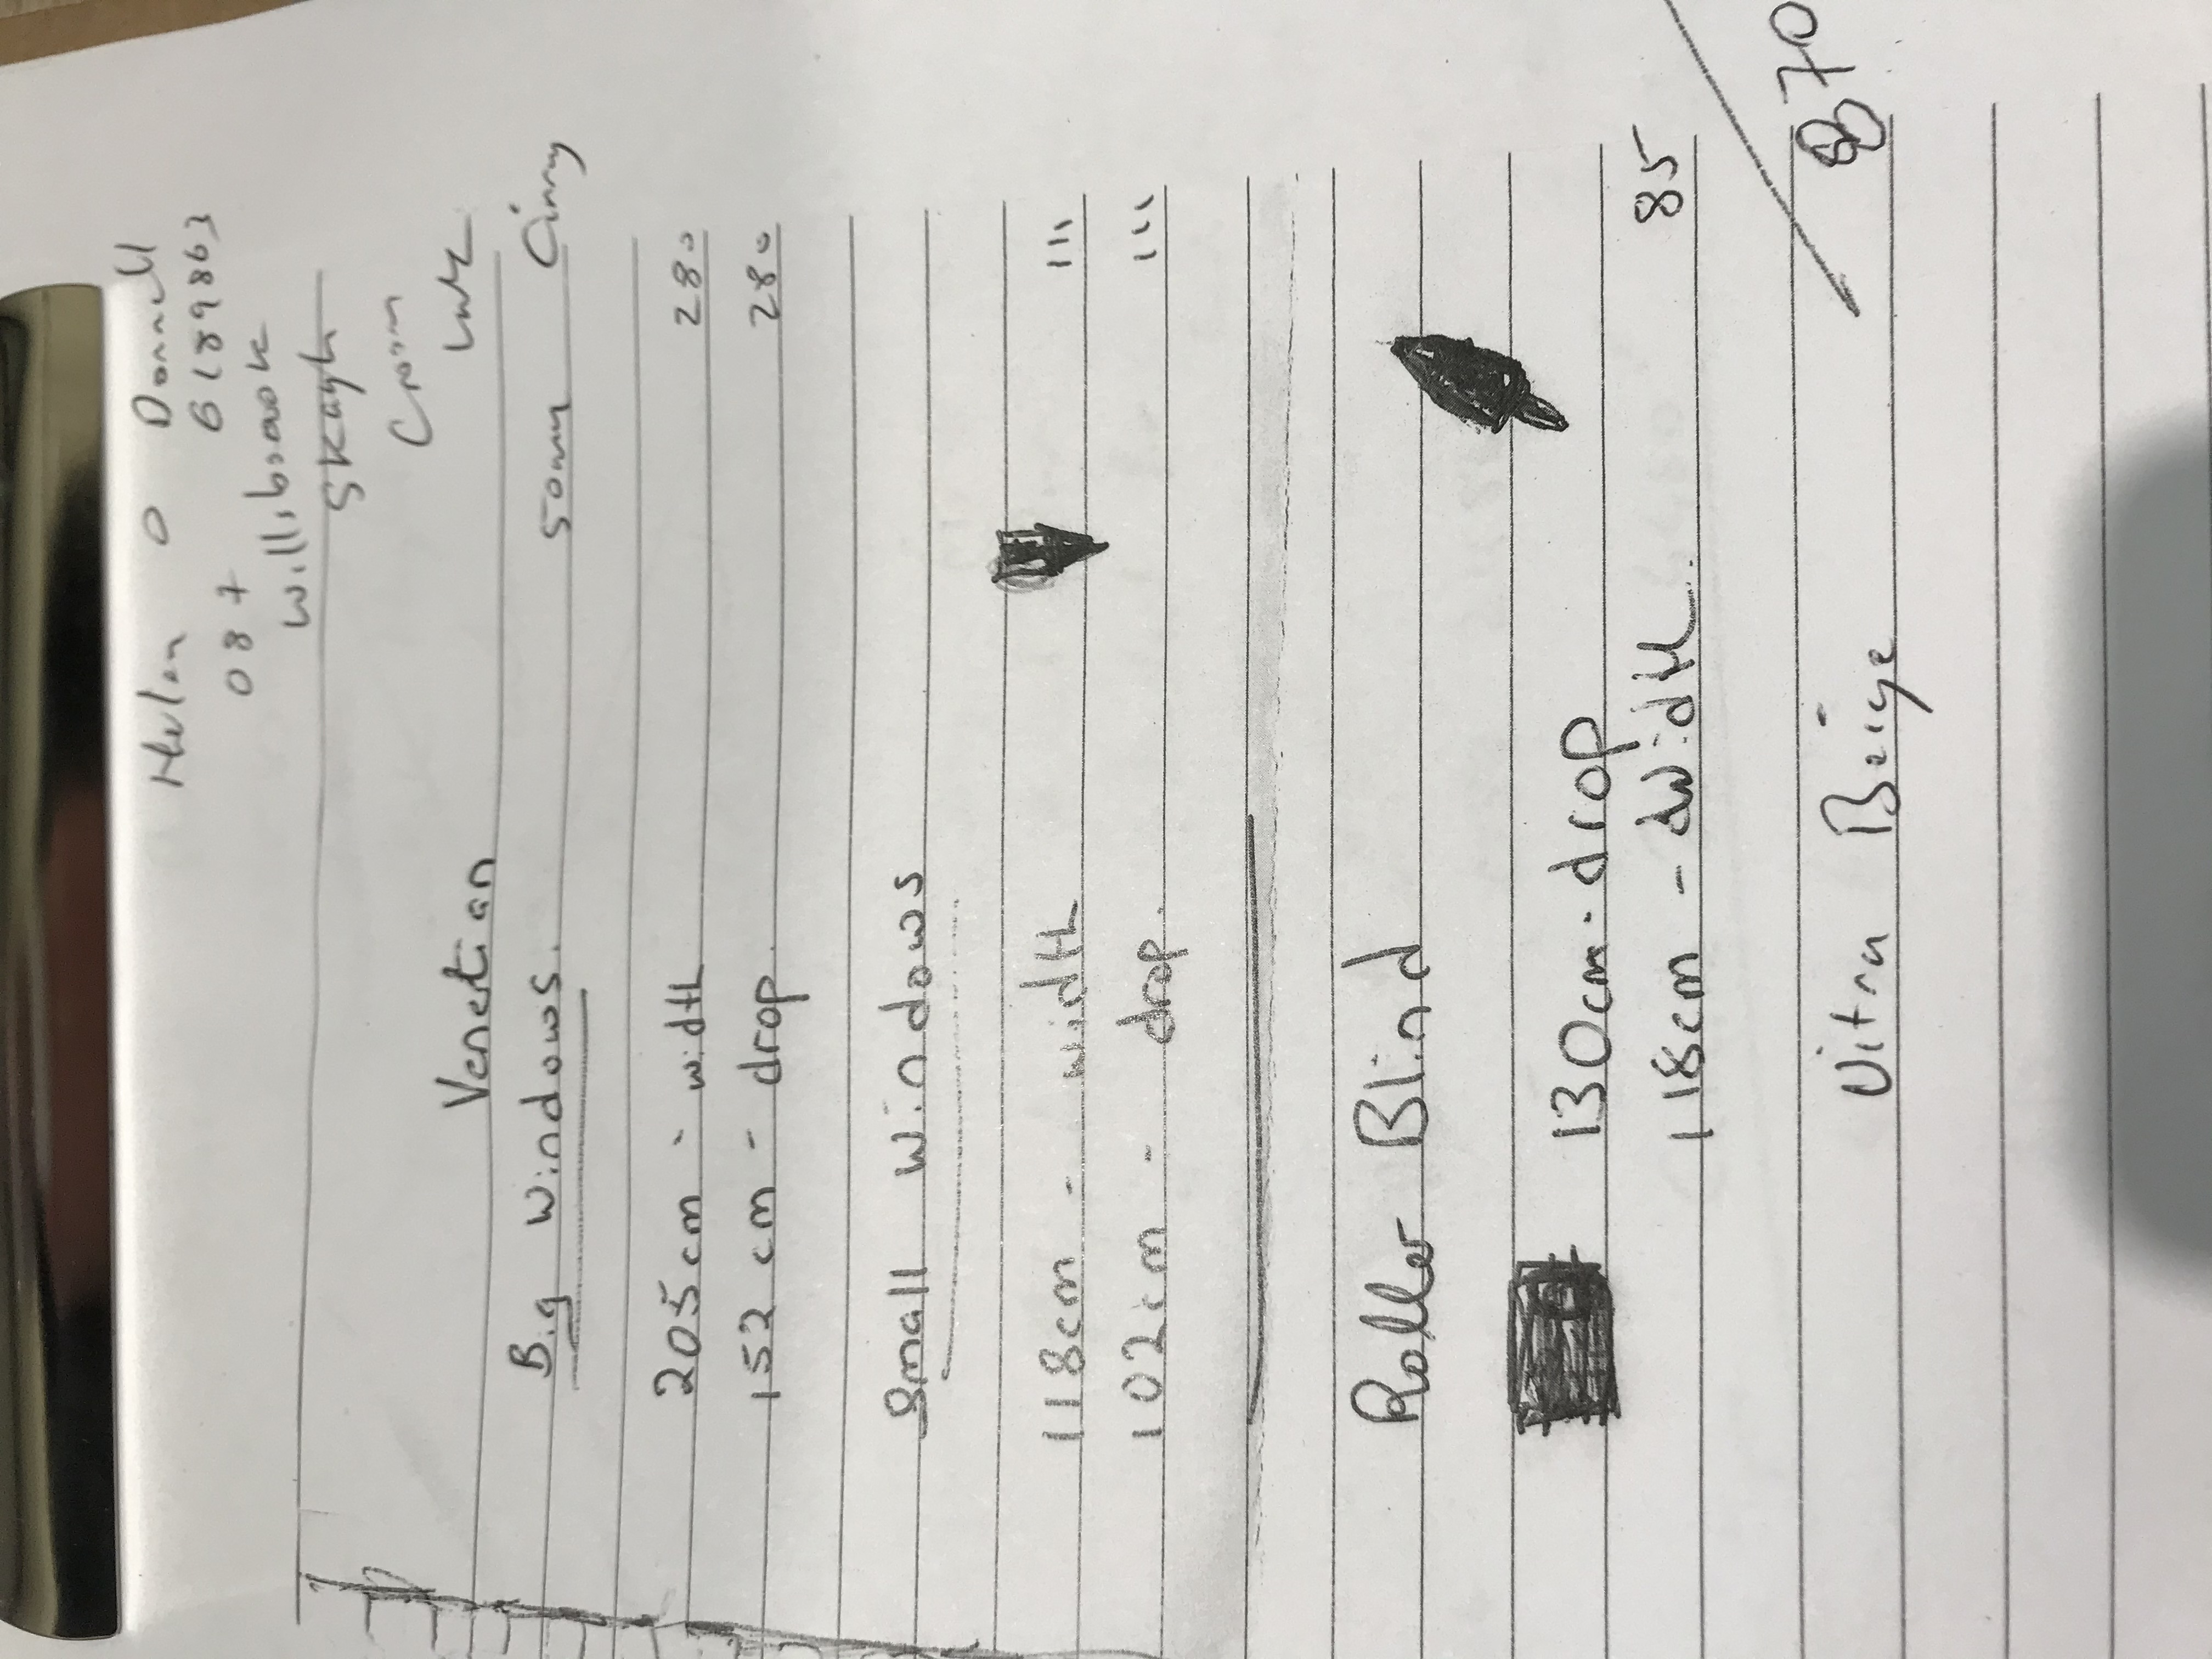 Helen O Donnell
087 6189863
Willibrook
Skagh
Croom
Venetian
Big Windows. 50mm
205cm - width 280
152 cm - drop 280
Small Windows
118cm - width 111
102cm - drop. 111
Roller Blind
130cm - drop
118cm - dwidth. 85
Nitra Beige 70